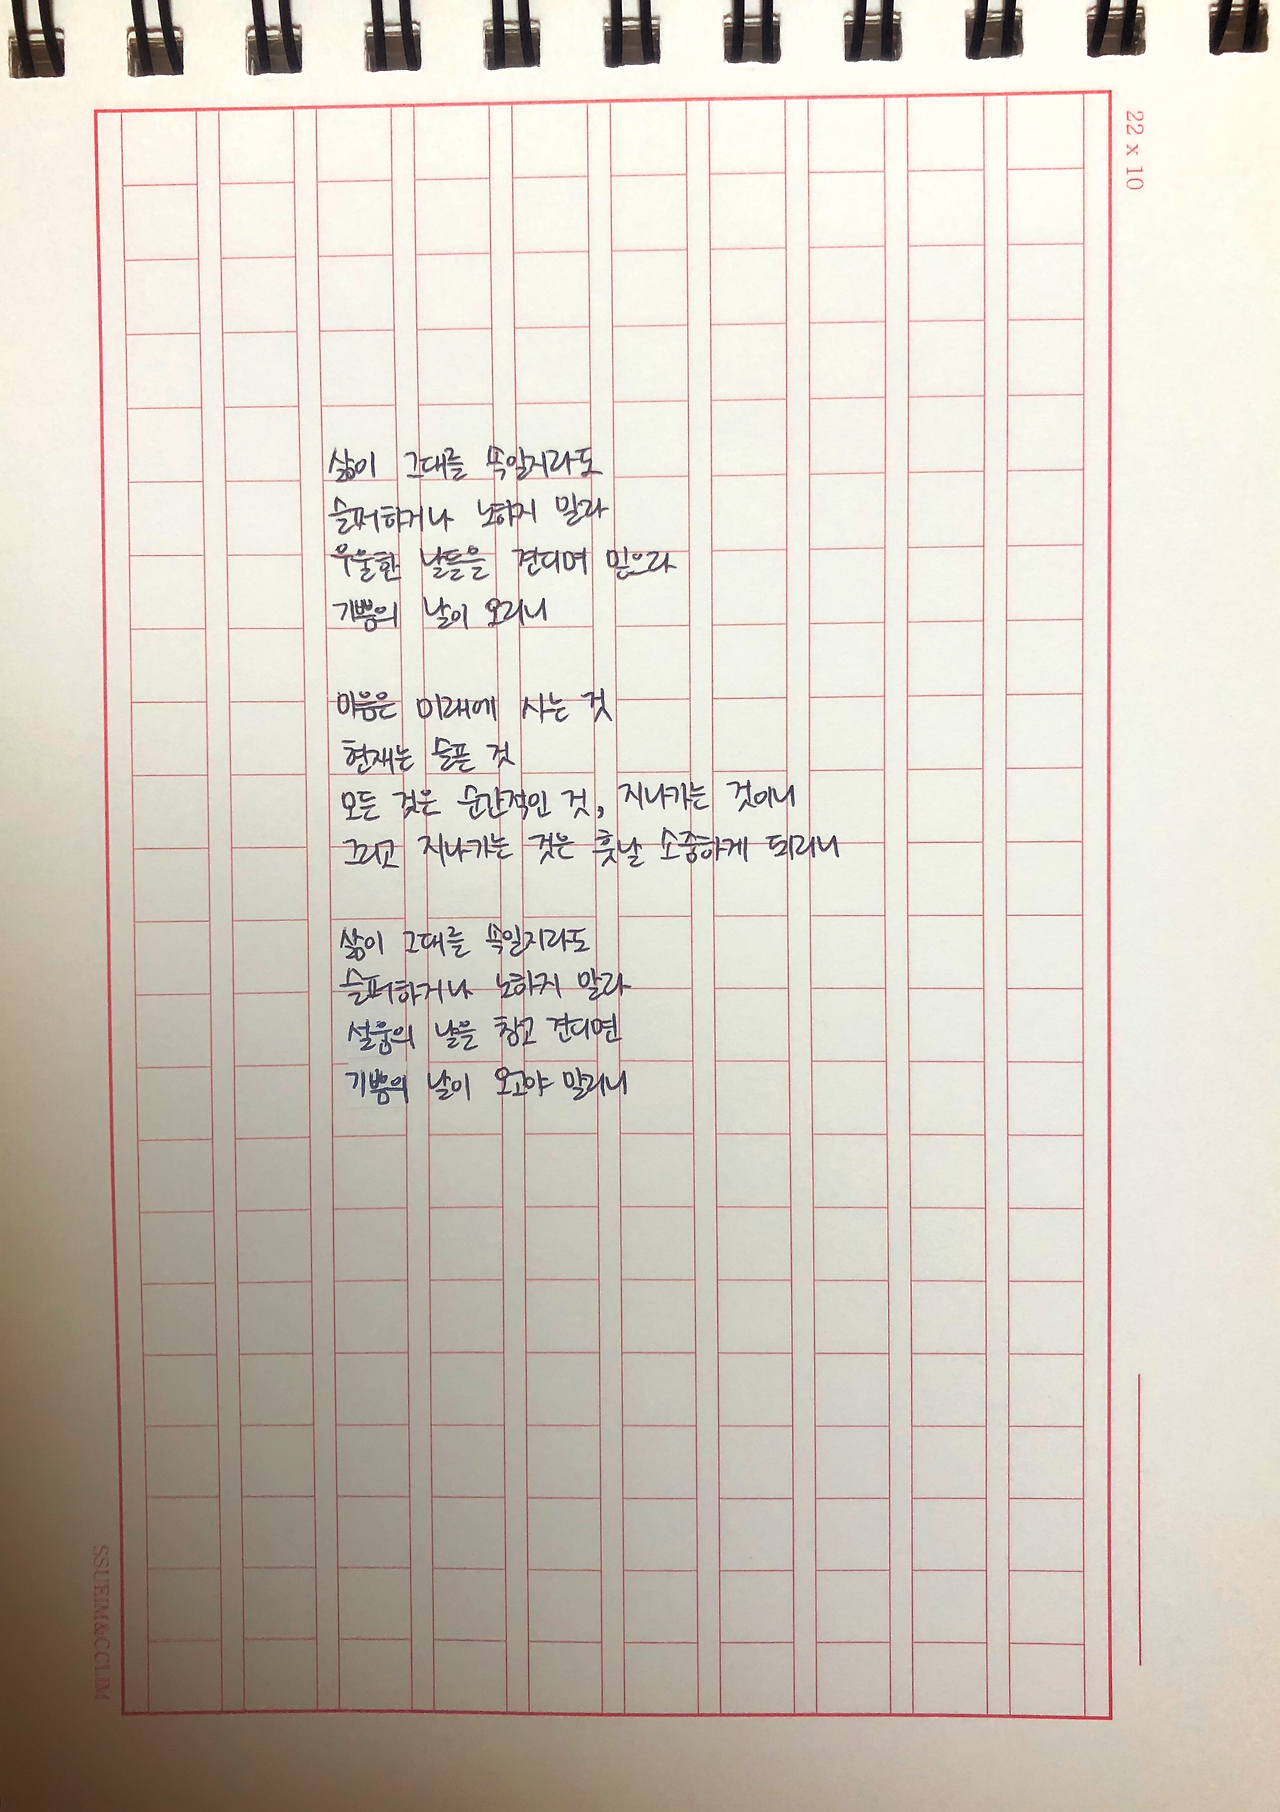 22 x 10
삶이 그대를 속일지라도
슬퍼하거나 노하지 말라
우울한 날들을 견디며 믿으라
기쁨의 날이 오리니
마음은 미래에 사는 것
현재는 슬픈 것
모든 것은 순간적인 것, 지나가는 것이니
그리고 지나가는 것은 훗날 소중하게 되리니
삶이 그대를 속일지라도
슬퍼하거나 노하지 말라
설움의 날을 참고 견디면
기쁨의 날이 오고야 말리니
SSUEIM&CCLIM